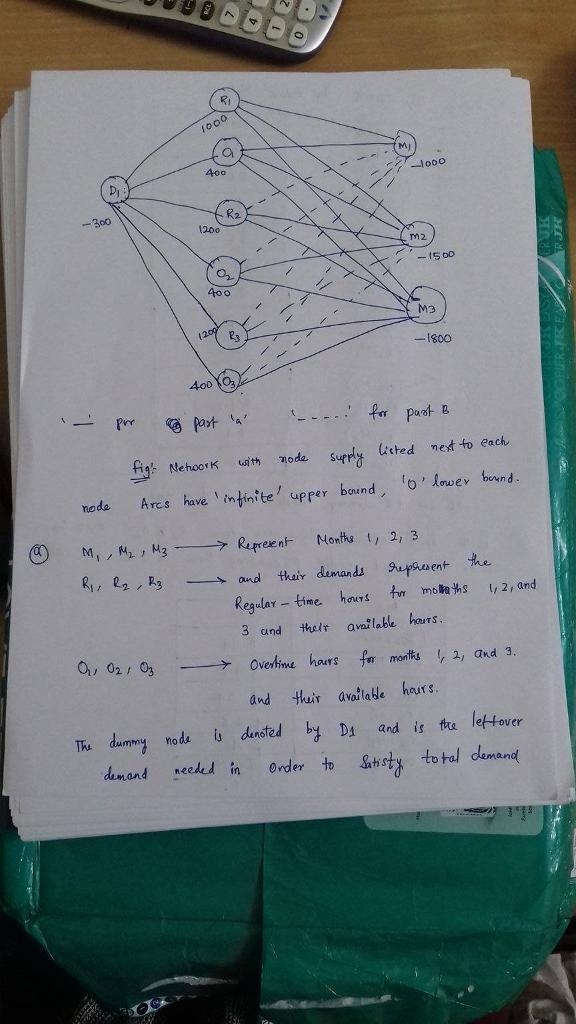 R1
1000
O1
400
M1
-1000
D1
-300
R2
1200
M2
-1500
O2
400
M3
-1800
1200
R3
400
O3
'—' for part 'a' '-----' for part B
Fig:- Network with node supply listed next to each
node Arcs have 'infinite' upper bound, '0' lower bound.
(a) M1, M2, M3 → Represent Months 1, 2, 3
R1, R2, R3 → and their demands represent the
Regular-time hours for months 1, 2, and
3 and their available hours.
O1, O2, O3 → Overtime hours for months 1, 2, and 3.
and their available hours.
The dummy node is denoted by D1 and is the leftover
demand needed in order to satisfy total demand